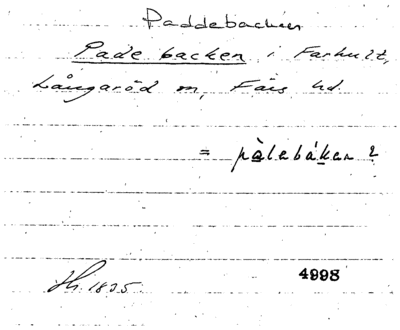 Paddebacken
Pade backen i Farhult,
Långaröd m, Färs hd.
= pàlebáken?
Hi. 1835.
4998